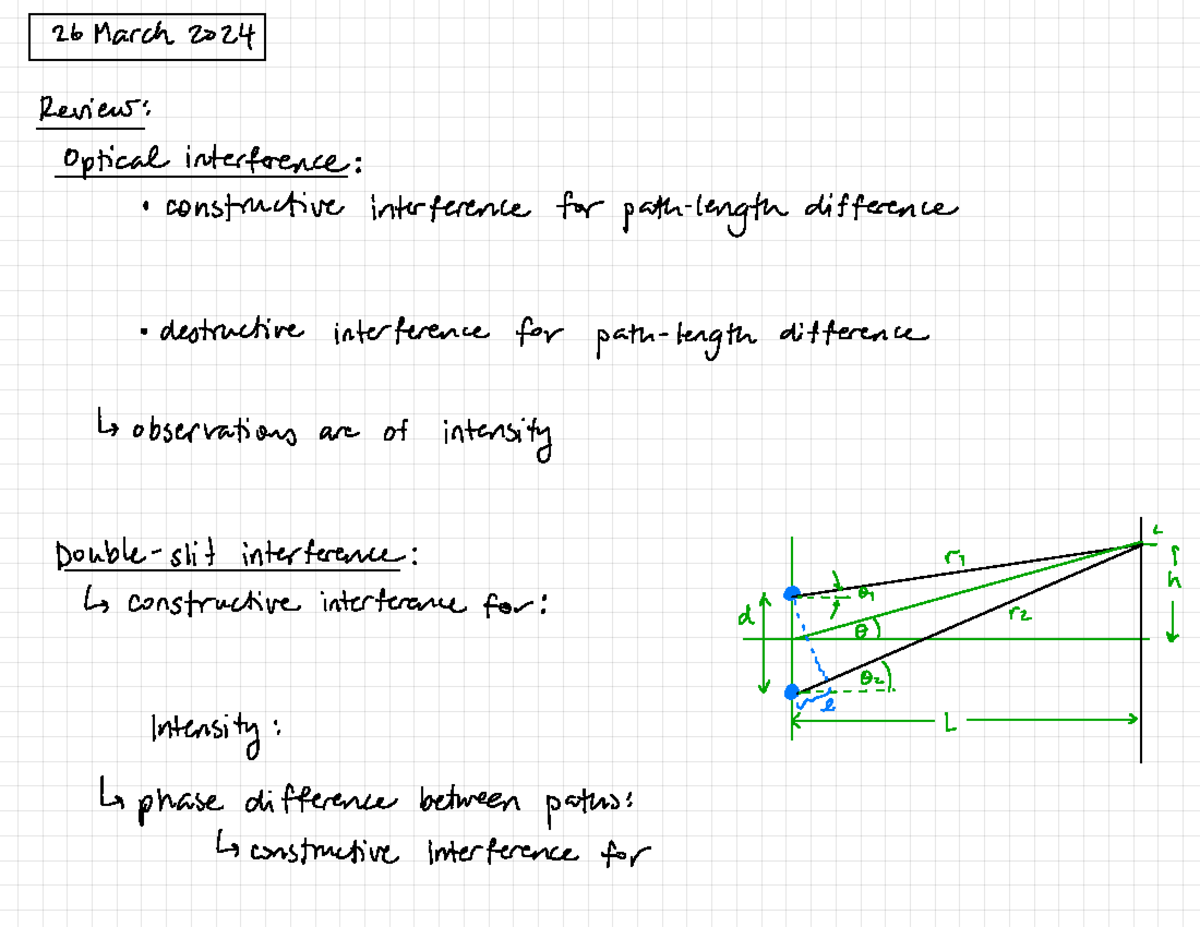 26 March 2024
Review:
Optical interference:
• constructive interference for path-length difference
• destructive interference for path-length difference
↳ observations are of intensity
Double-slit interference:
↳ constructive interference for:
Intensity:
↳ phase difference between paths:
↳ constructive interference for
r₁
h
d
θ₁
θ
r₂
θ₂
l
L